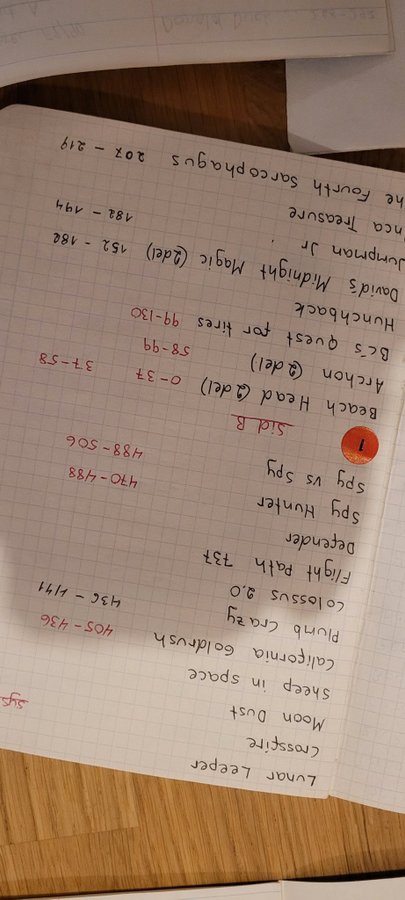 Lunar Leeper
Crossfire
Moon Dust
Sheep in space
California Goldrush 405-436
Plumb Crazy 436 - 441
Colossus 2.0
Flight Path 737
Defender
Spy Hunter 470-488
Spy vs Spy 488-506
1 Sid B
Beach Head (2 del) 0-37 37-58
Archon (2 del) 58-99
BC's Quest for tires 99-130
Hunchback
David's Midnight Magic (2del) 152 - 182
Jumpman Jr. 182 - 194
nca Treasure
he Fourth Sarcophagus 207 - 219